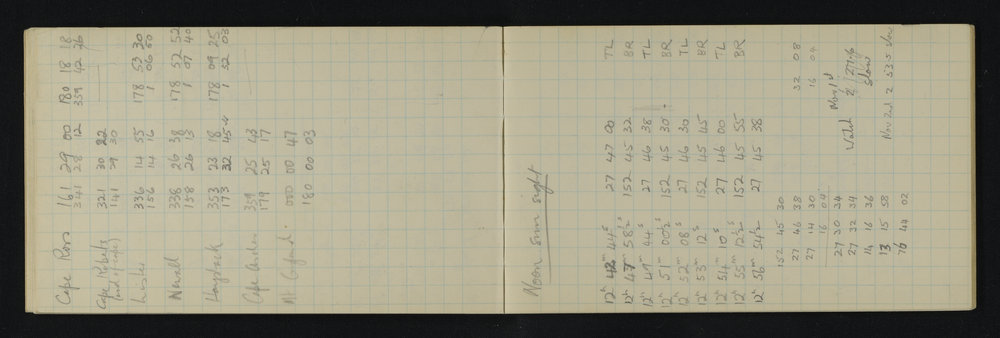 Cape Ross 161 29 00 180 18 18
341 28 12 359 42 26
Cape Roberts 321 30 22
(end of cape) 141 29 30
Lister 336 14 55 178 53 30
156 14 16 1 06 50
Newall 338 26 38 178 52 52
158 26 13 1 07 40
Haystack 353 23 18 178 09 25
173 32 45 1 52 03
Cape Archer 359 25 43
179 25 17
Mt 000 00 47
180 00 03
Noon sun sight
12h 42m 44s 27 47 00 TL
12h 47m 58½s 152 45 32 BR
12h 49m 44s 27 46 38 TL
12h 51m 00½s 152 45 30 BR
12h 52m 08s 27 46 30 TL
12h 53m 12s 152 45 45 BR
12h 54m 10s 27 46 00 TL
12h 55m 12½s 152 45 55 BR
12h 56m 54½ 27 45 38
152 45 30
27 46 38 32 08
27 14 30 16 04
16 04
27 30 34 Watch Nov 1st
27 32 34 2 27.6
14 16 36 slow
13 15 58 Nov 2nd 2 53.5 slow
76 44 02